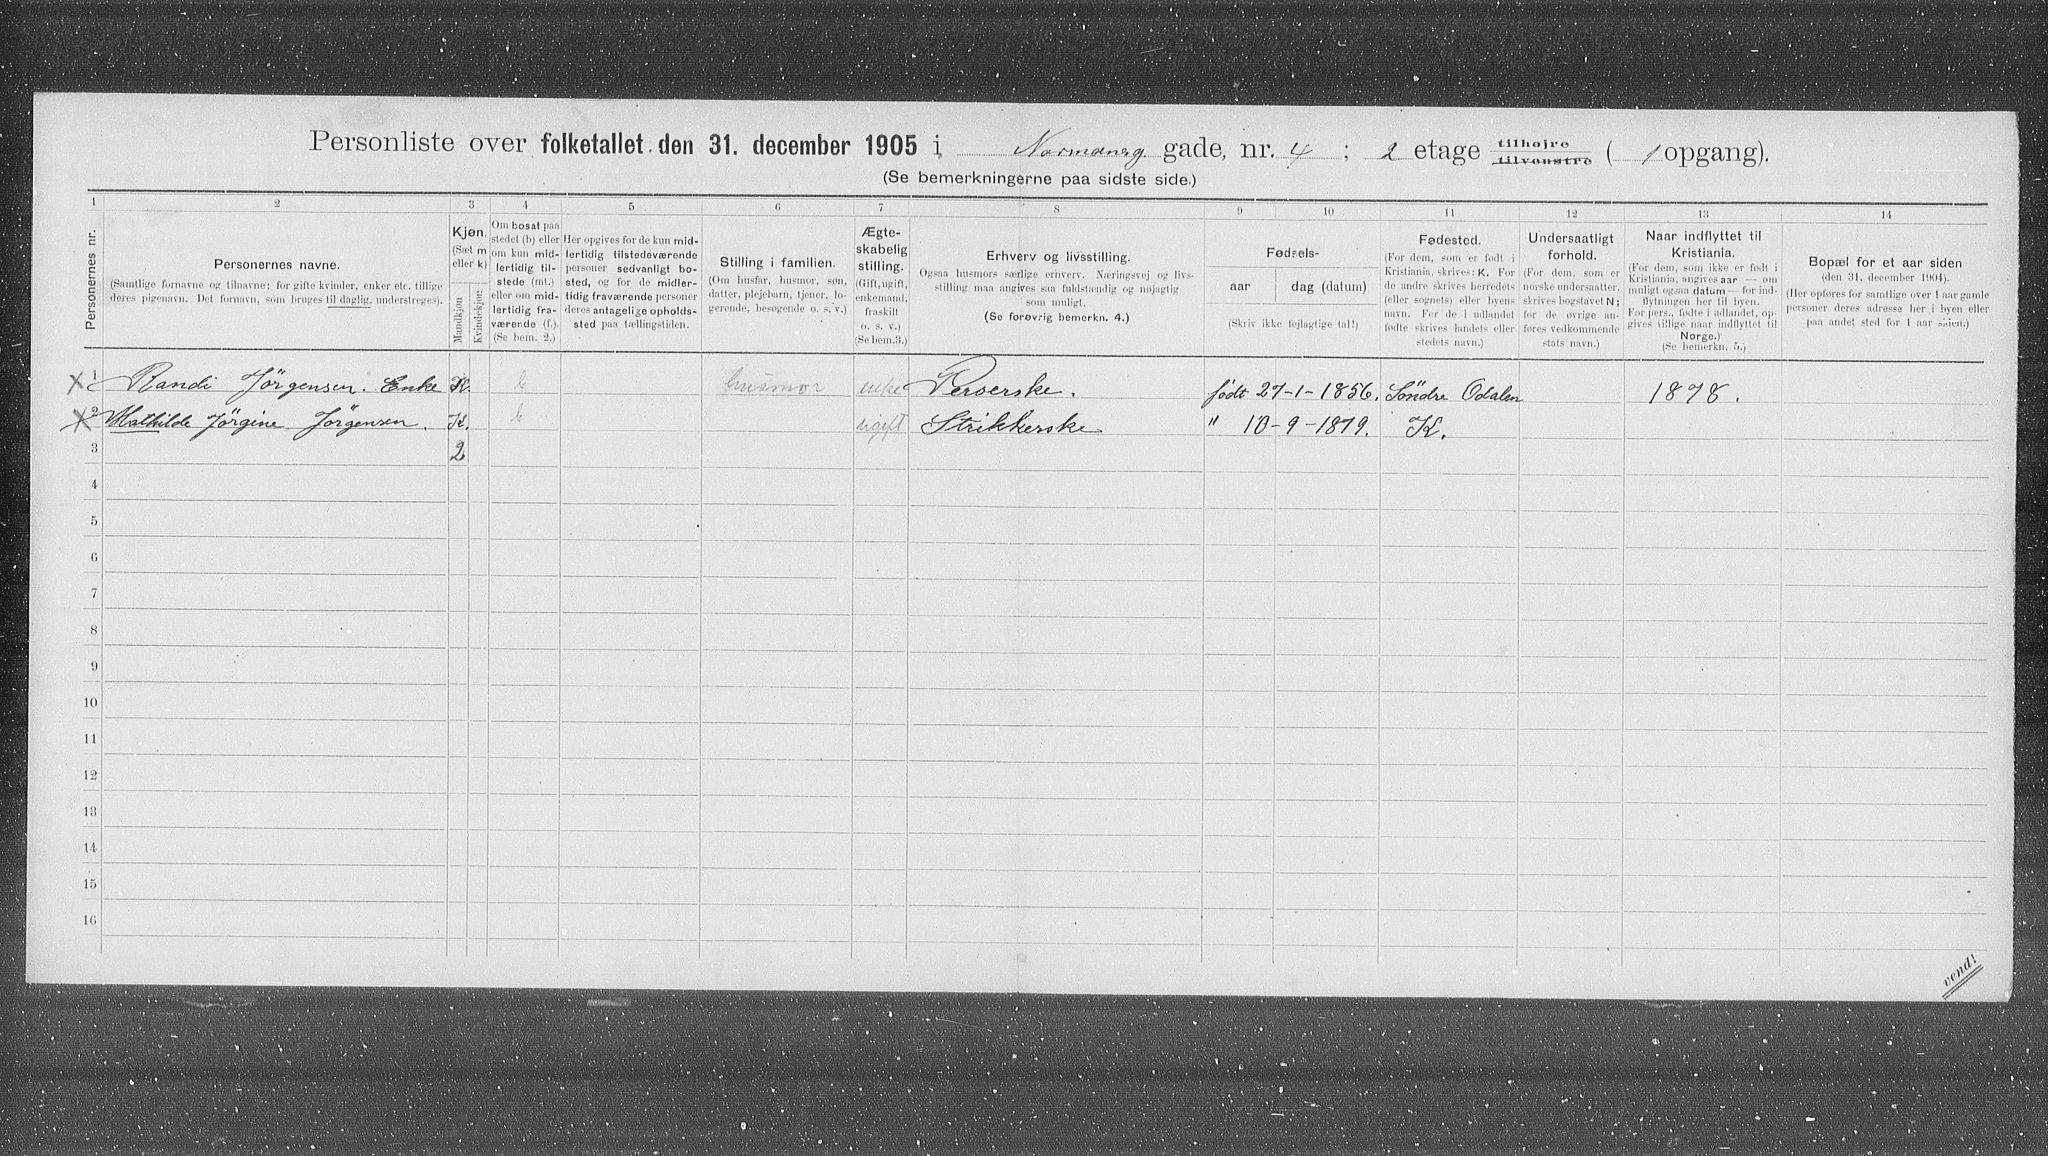 Personliste over folketallet den 31. december 1905 i Normansg. gade, nr. 4 ; 2 etage tilhøjre tilvenstre ( 1 opgang).
(Se bemerkningerne paa sidste side.)
1 2 3 4 5 6 7 8 9 10 11 12 13 14
Personernes nr.
Personernes navne.
(Samtlige fornavne og tilnavne; for gifte kvinder, enker etc. tillige
deres pigenavn. Det fornavn, som bruges til daglig, understreges).
Kjøn.
(Sæt m
eller k)
Mandkjøn
Kvindekjøn
Om bosat paa
stedet (b) eller
om kun mid-
lertidig til-
stede (mt.)
eller om mid-
lertidig fra-
værende (f.).
(Se bem. 2.)
Her opgives for de kun mid-
lertidig tilstedeværende
personer sedvanligt bo-
sted, og for de midler-
tidig fraværende personer
deres antagelige opholds-
sted paa tællingstiden.
Stilling i familien.
(Om husfar, husmor, søn,
datter, plejebarn, tjener, lo-
gerende, besøgende o. s. v.)
Ægte-
skabelig
stilling.
(Gift, ugift,
enkemand,
fraskilt
o. s. v.)
(Se bem.3.)
Erhverv og livsstilling.
Ogsaa husmors særlige erhverv. Næringsvej og livs-
stilling maa angives saa fuldstændig og nøjagtig
som muligt.
(Se forøvrig bemerkn. 4.)
Fødsels-
aar dag (datum)
(Skriv ikke fejlagtige tal!)
Fødested.
(For dem, som er født i
Kristiania, skrives: K. For
de andre skrives herredets
(eller sognets) eller byens
navn. For de i udlandet
fødte skrives landets eller
stedets navn.)
Undersaatligt
forhold.
(For dem, som er
norske undersaatter,
skrives bogstavet N;
for de øvrige an-
føres vedkommende
stats navn.)
Naar indflyttet til
Kristiania.
(For dem, som ikke er født i
Kristiania, angives aar — om
muligt ogsaa datum — for ind-
flytningen her til byen.
For pers., fødte i udlandet, op-
gives tillige naar indflyttet til
Norge.)
(Se bemerkn. 5.)
Bopæl for et aar siden
(den 31. december 1904).
(Her opføres for samtlige over 1 aar gamle
personer deres adresse her i byen eller
paa andet sted for 1 aar siden.)
1 Randi Jørgensen. Enke K. b husmor enke Perserske. født 27-1-1856. Søndre Odalen 1878.
2 Mathilde Jørgine Jørgensen. K. b ugift Strikkerske " 10-9-1879. K.
3 2
4
5
6
7
8
9
10
11
12
13
14
15
16
vend!